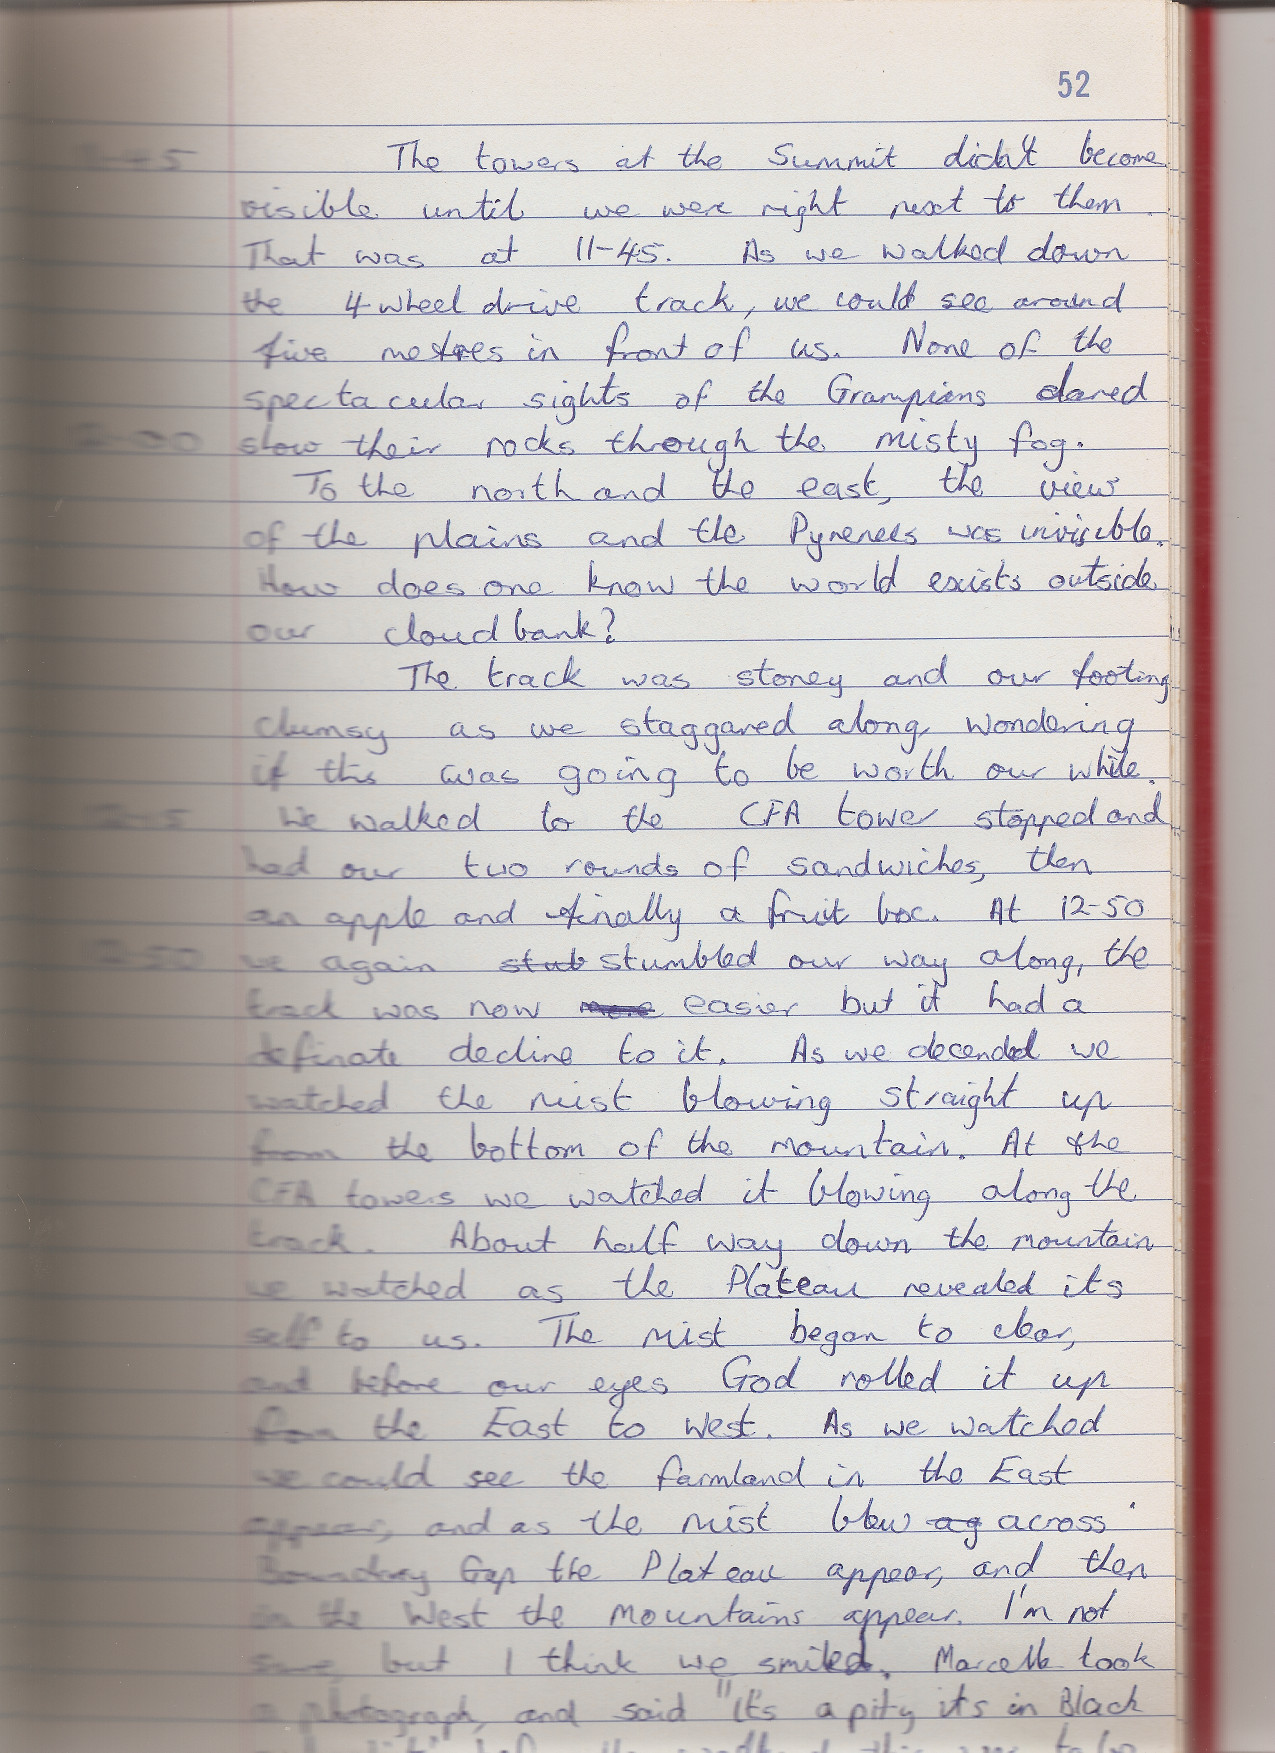 52
11-45 The towers at the Summit didn't become
visible until we were right next to them.
That was at 11-45. As we walked down
the 4 wheel drive track, we could see around
five metres in front of us. None of the
spectacular sights of the Grampians dared
12-00 show their rocks through the misty fog.
To the north and the east, the view
of the plains and the Pyrenees was invisible.
How does one know the world exists outside
our cloud bank?
The track was stoney and our footing
clumsy as we staggared along, wondering
if this was going to be worth our while.
We walked to the CFA tower stopped and
had our two rounds of sandwiches, then
an apple and finally a fruit box. At 12-50
12-50 we again stub stumbled our way along, the
track was now more easier but it had a
definate decline to it. As we decended we
watched the mist blowing straight up
from the bottom of the mountain. At the
CFA towers we watched it blowing along the
track. About half way down the mountain
we watched as the Plateau revealed its
self to us. The mist began to clear,
and before our eyes God rolled it up
from the East to West. As we watched
we could see the farmland in the East
appear, and as the mist blew ag across
Boundary Gap the Plateau appear, and then
in the West the mountains appear. I'm not
sure but I think we smiled. Marcelle took
a photograph, and said "It's a pity its in Black